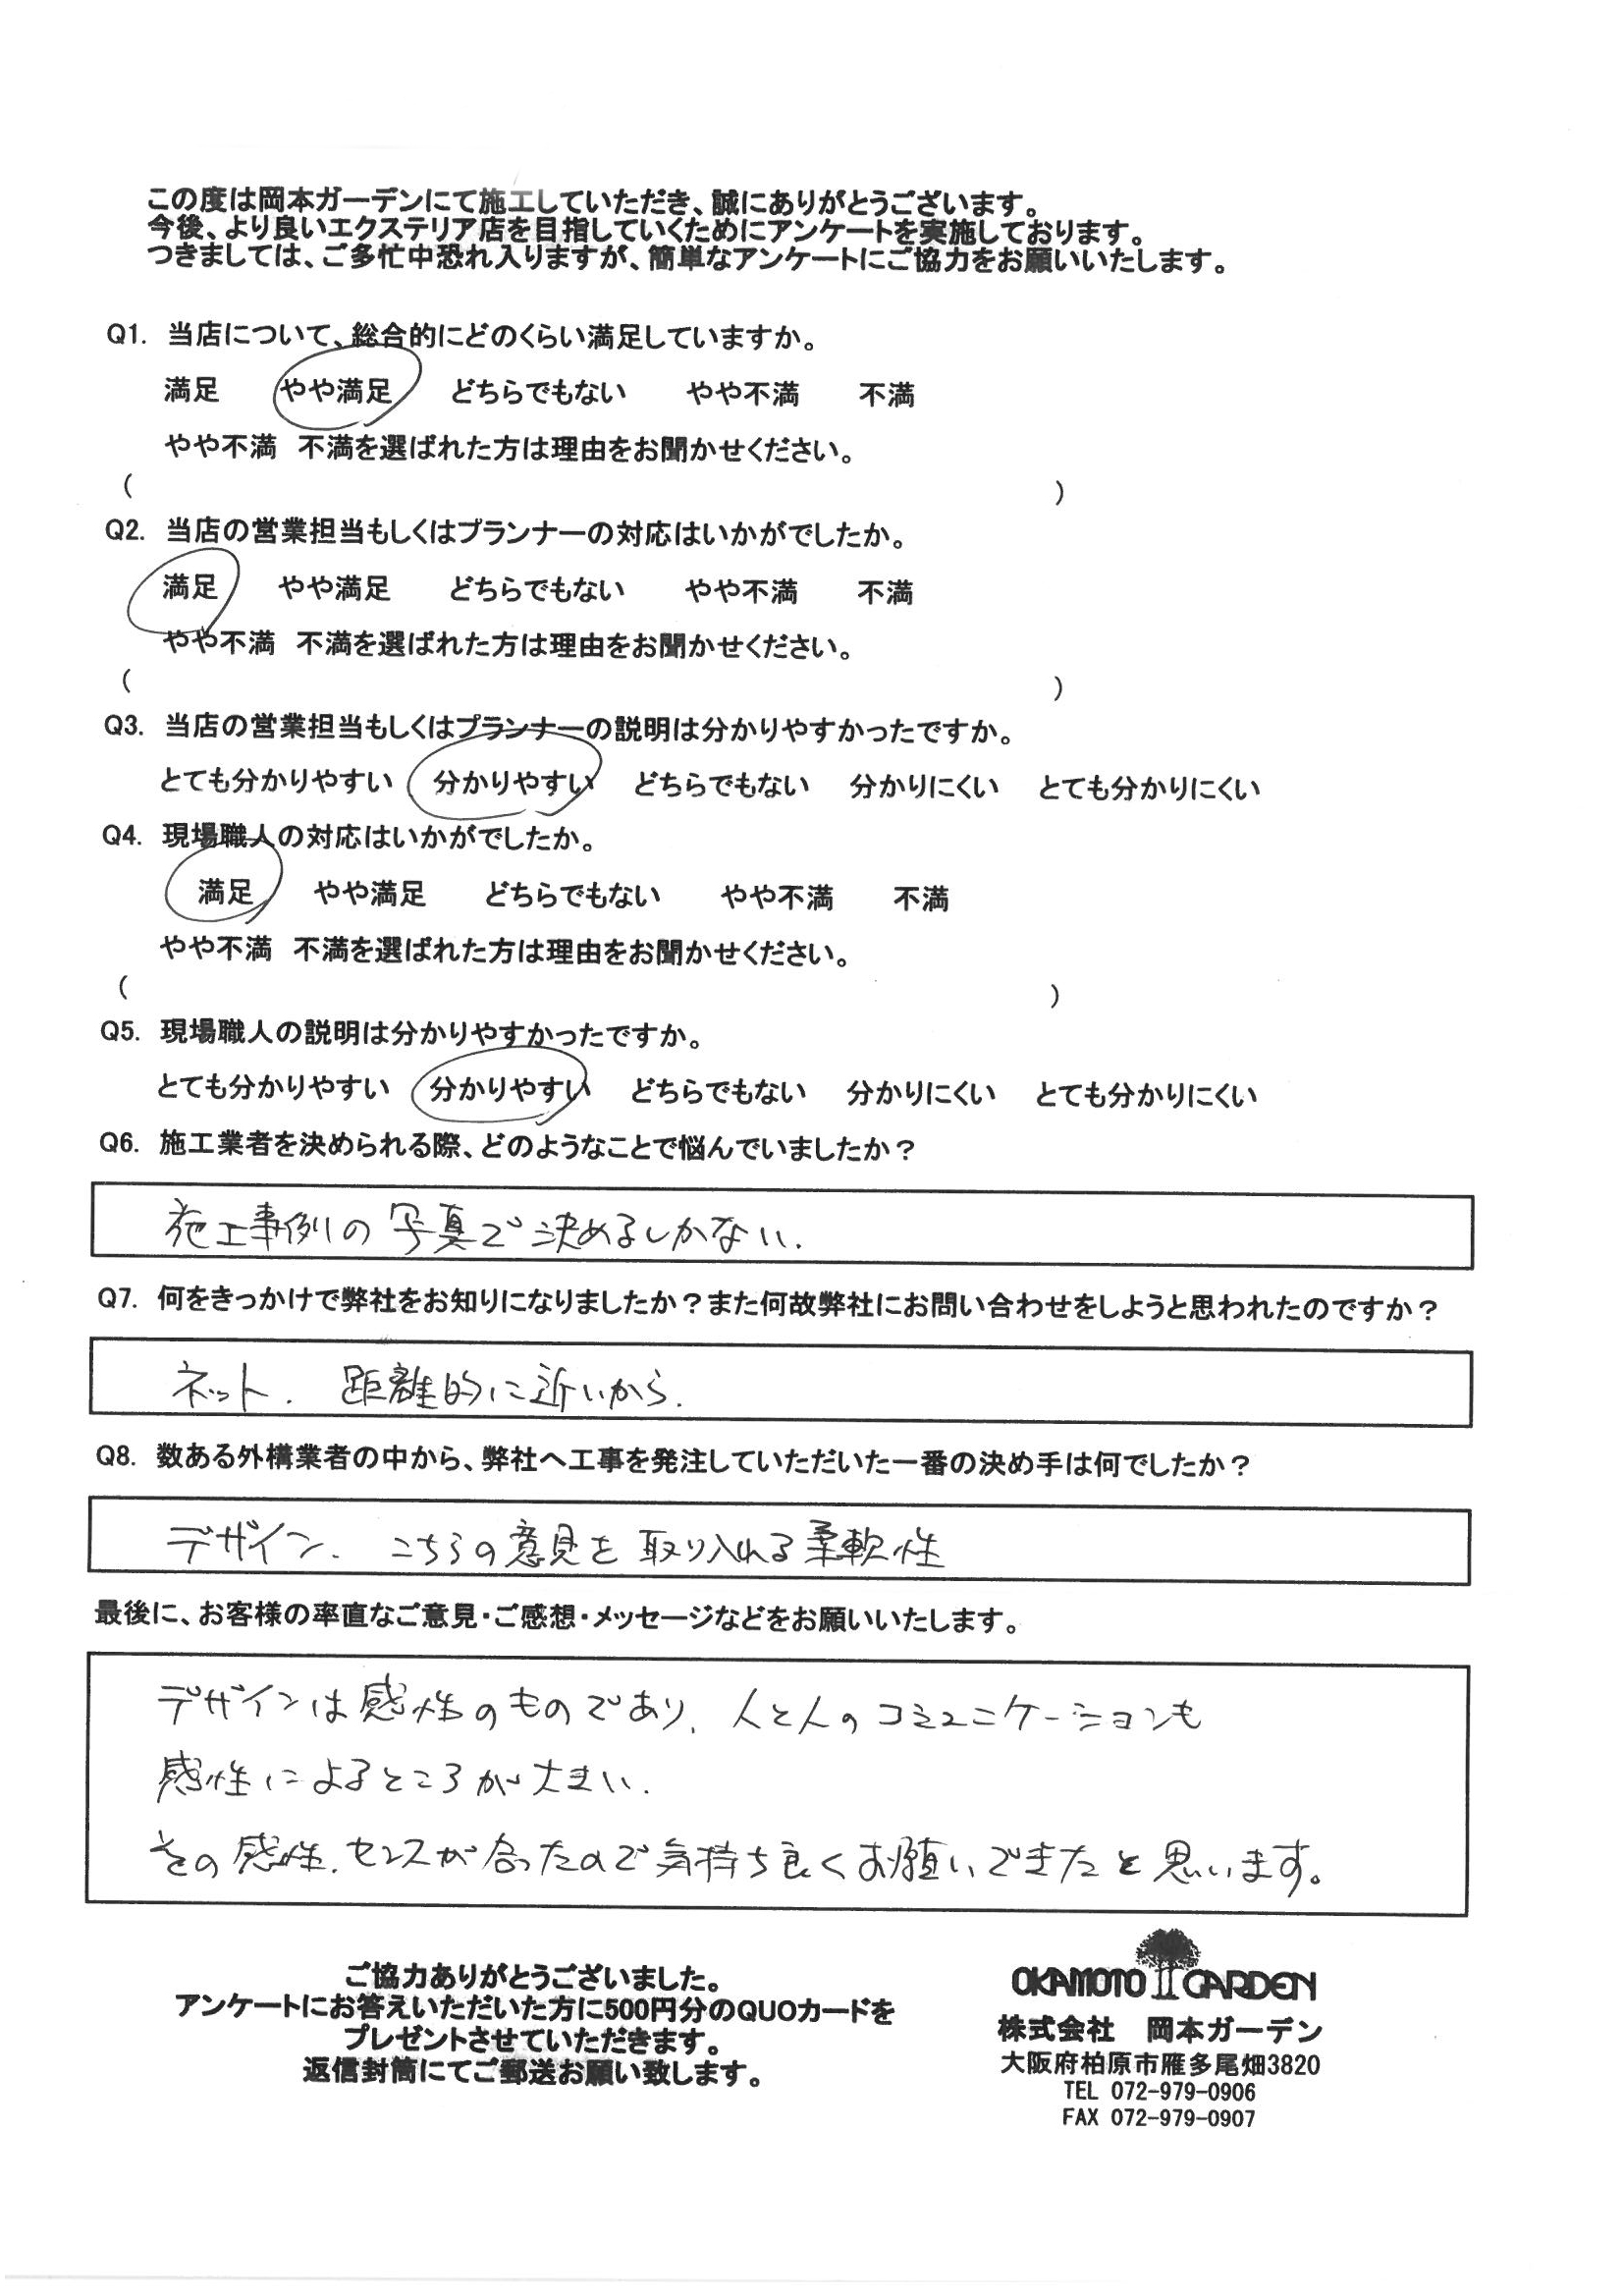 この度は岡本ガーデンにて施工していただき、誠にありがとうございます。
今後、より良いエクステリア店を目指していくためにアンケートを実施しております。
つきましては、ご多忙中恐れ入りますが、簡単なアンケートにご協力をお願いいたします。
Q1. 当店について、総合的にどのくらい満足していますか。
満足 やや満足 どちらでもない やや不満 不満
やや不満 不満を選ばれた方は理由をお聞かせください。
( )
Q2. 当店の営業担当もしくはプランナーの対応はいかがでしたか。
満足 やや満足 どちらでもない やや不満 不満
やや不満 不満を選ばれた方は理由をお聞かせください。
( )
Q3. 当店の営業担当もしくはプランナーの説明は分かりやすかったですか。
とても分かりやすい 分かりやすい どちらでもない 分かりにくい とても分かりにくい
Q4. 現場職人の対応はいかがでしたか。
満足 やや満足 どちらでもない やや不満 不満
やや不満 不満を選ばれた方は理由をお聞かせください。
( )
Q5. 現場職人の説明は分かりやすかったですか。
とても分かりやすい 分かりやすい どちらでもない 分かりにくい とても分かりにくい
Q6. 施工業者を決められる際、どのようなことで悩んでいましたか？
施工事例の写真で決めるしかない.
Q7. 何をきっかけで弊社をお知りになりましたか？また何故弊社にお問い合わせをしようと思われたのですか？
ネット. 距離的に近いから.
Q8. 数ある外構業者の中から、弊社へ工事を発注していただいた一番の決め手は何でしたか？
デザイン. こちらの意見を取り入れる柔軟性
最後に、お客様の率直なご意見・ご感想・メッセージなどをお願いいたします。
デザインは感性のものであり、人と人のコミュニケーションも
感性によるところが大きい.
その感性、センスが合ったので気持ち良くお願いできたと思います。
ご協力ありがとうございました。
アンケートにお答えいただいた方に500円分のQUOカードを
プレゼントさせていただきます。
返信封筒にてご郵送お願い致します。
OKAMOTO GARDEN
株式会社 岡本ガーデン
大阪府柏原市雁多尾畑3820
TEL 072-979-0906
FAX 072-979-0907